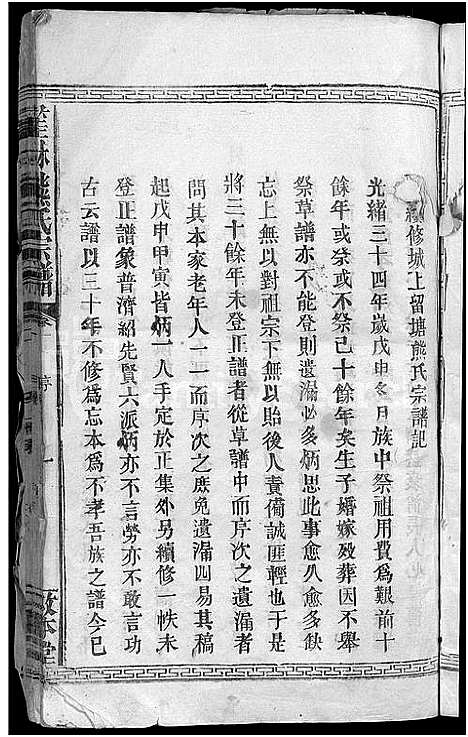 修城上留塘熊氏宗譜記
光緒三十四年歲戊申冬日族中祭祖用費爲艱前十
餘年或祭或不祭已十餘年矣生子婚嫁殁葬因不舉
祭草譜亦不能登則遺漏必多炳思此事愈久愈多缺
忘上無以對祖宗下無以貽後人責備誠匪輕也于是
將三十餘年未登正譜者從草譜中而序次之遺漏者
問其本家老年人一一而序次之庶免遺漏四易其稿
起戊申甲寅皆炳一人手定於正集外另續修一帙未
登正譜象普濟紹先賢六派炳亦不言勞亦不敢言功
古云譜以三十年不修爲忘本爲不孝吾族之譜今已
熊氏宗譜
序
敦本堂